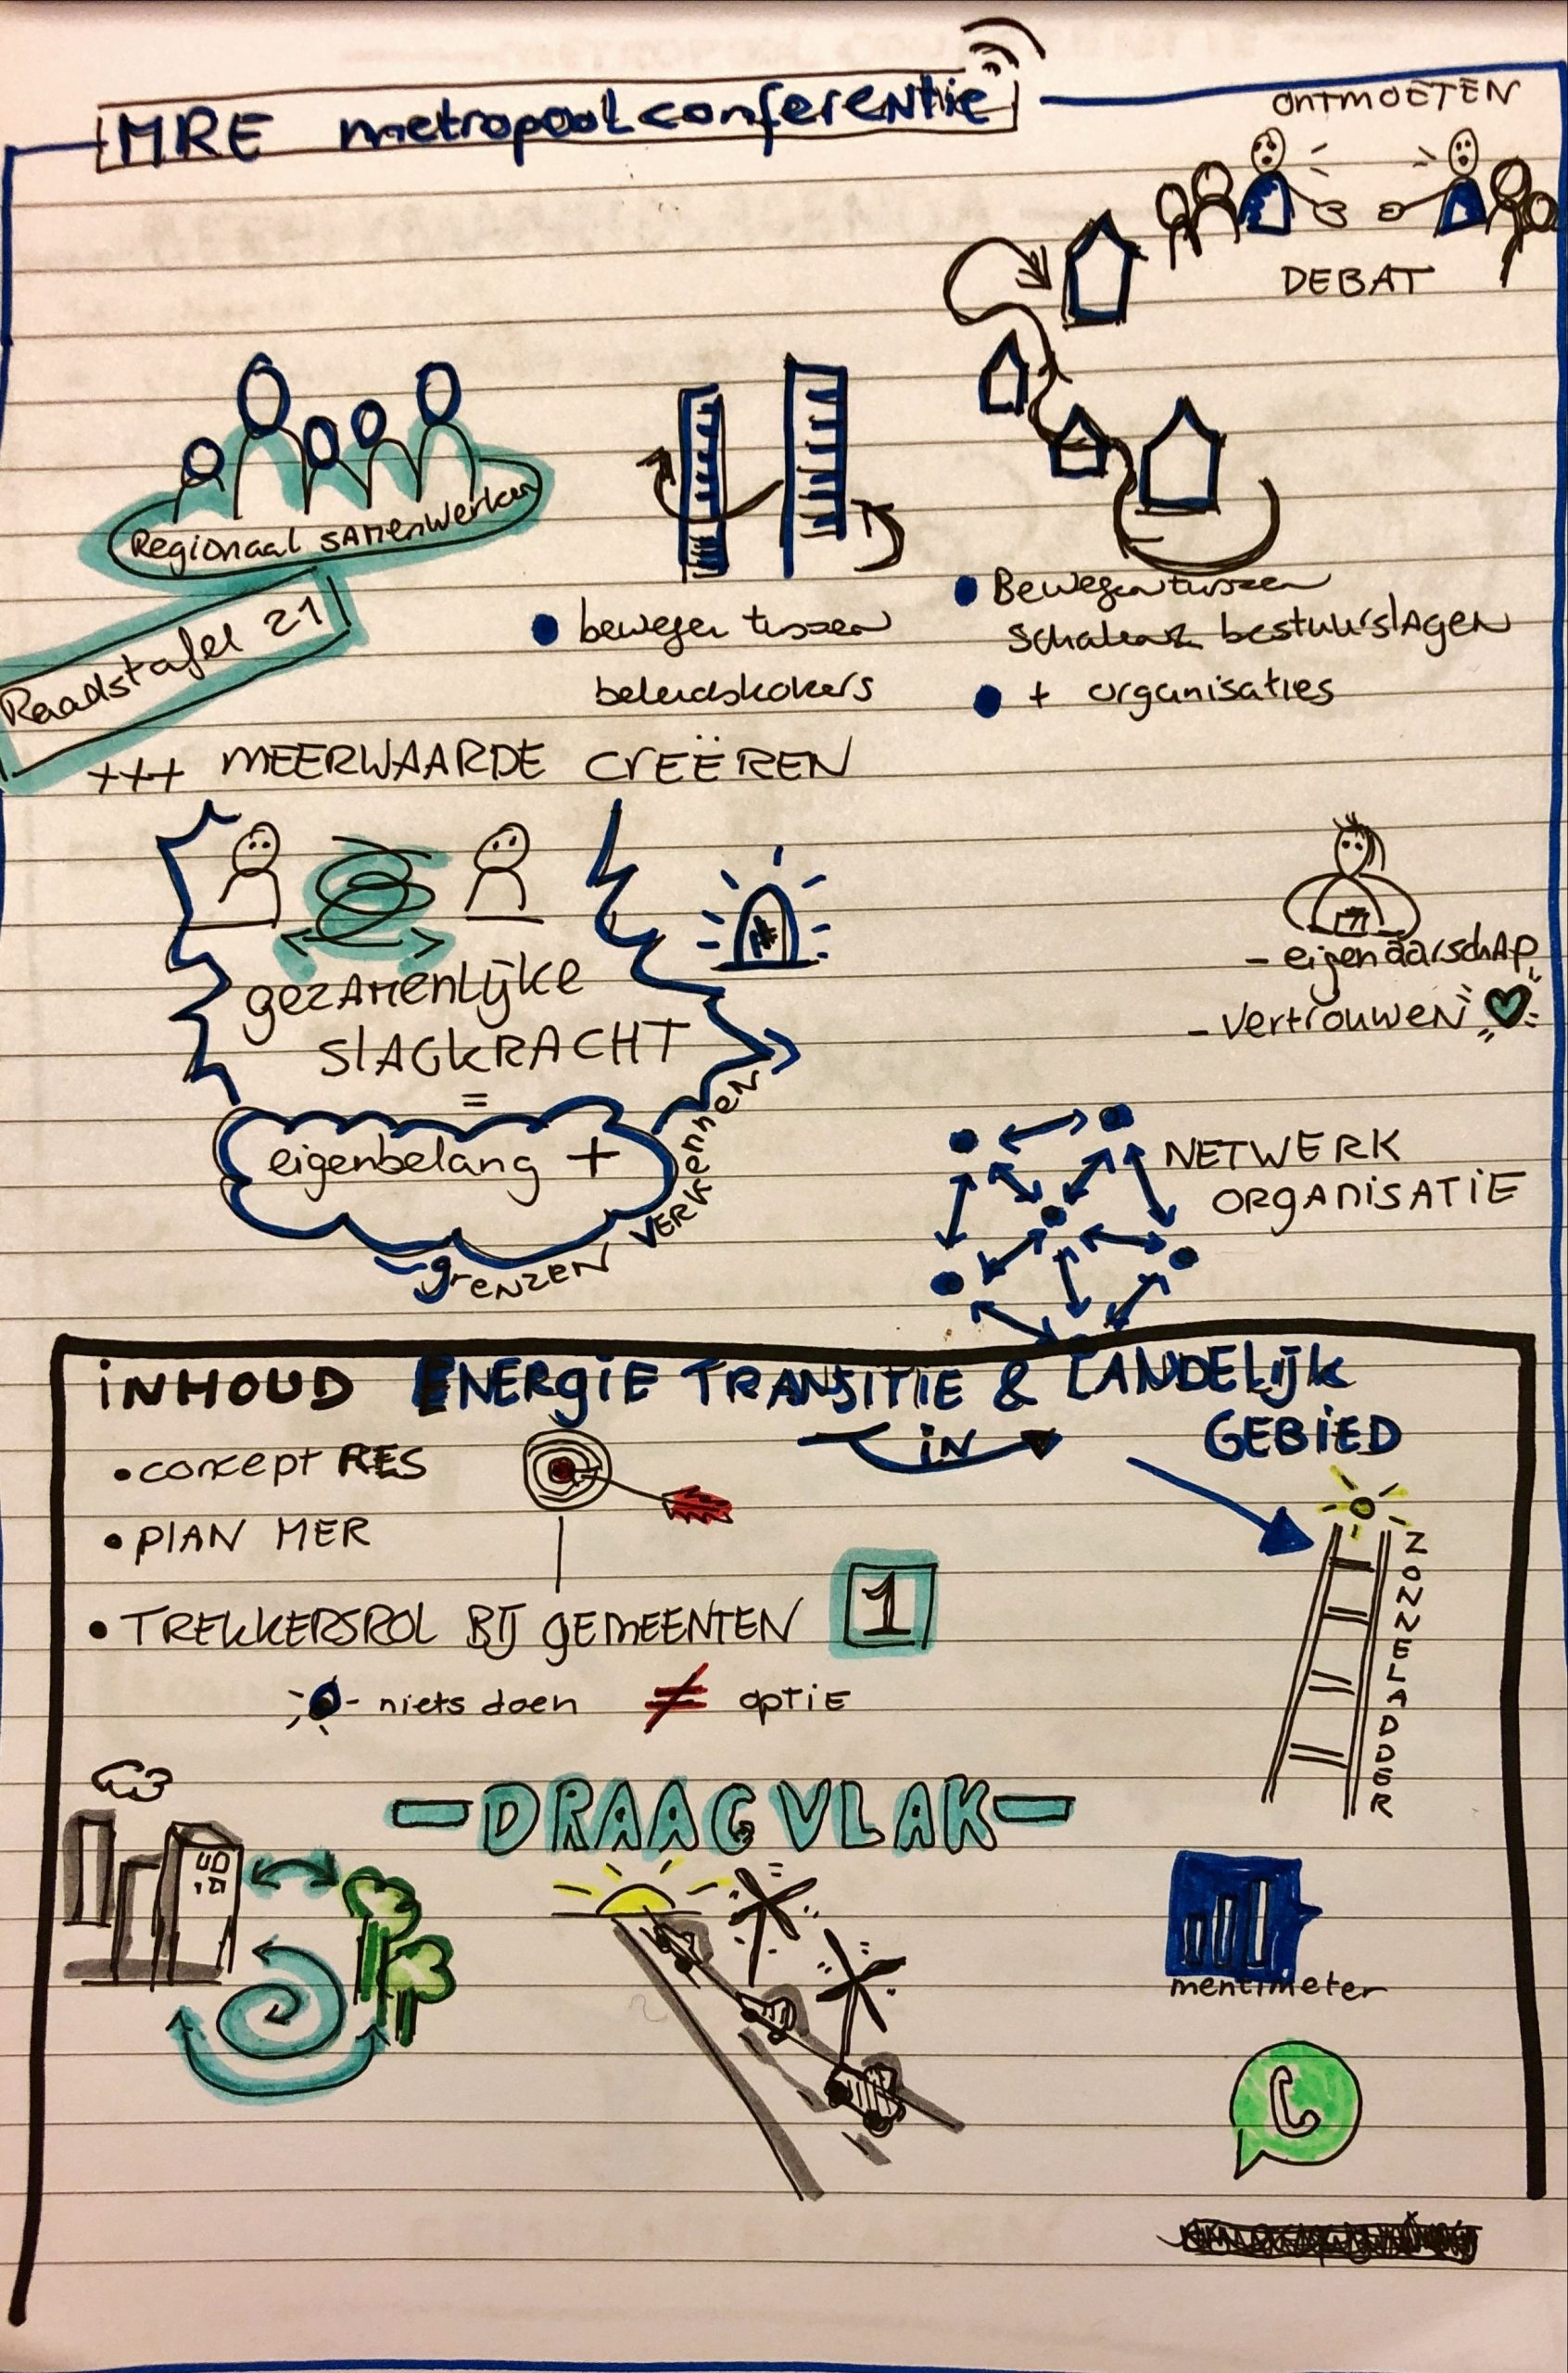 MRE metropoolconferentie
ONTMOETEN
DEBAT
Regionaal samenwerken
Raadstafel 21
bewegen tussen
beleidskokers
Bewegen tussen
Schalen & bestuurslagen
+ organisaties
+++ MEERWAARDE CREËREN
gezamenlijke
SLAGKRACHT
=
eigenbelang +
grenzen verkennen
- eigenaarschap
- vertrouwen
NETWERK
ORGANISATIE
INHOUD ENERGIE TRANSITIE & LANDELIJK
IN
GEBIED
• concept RES
• PLAN MER
• TREKKERSROL BIJ GEMEENTEN 1
niets doen ≠ optie
ZONNELADDER
- DRAAGVLAK -
mentimeter